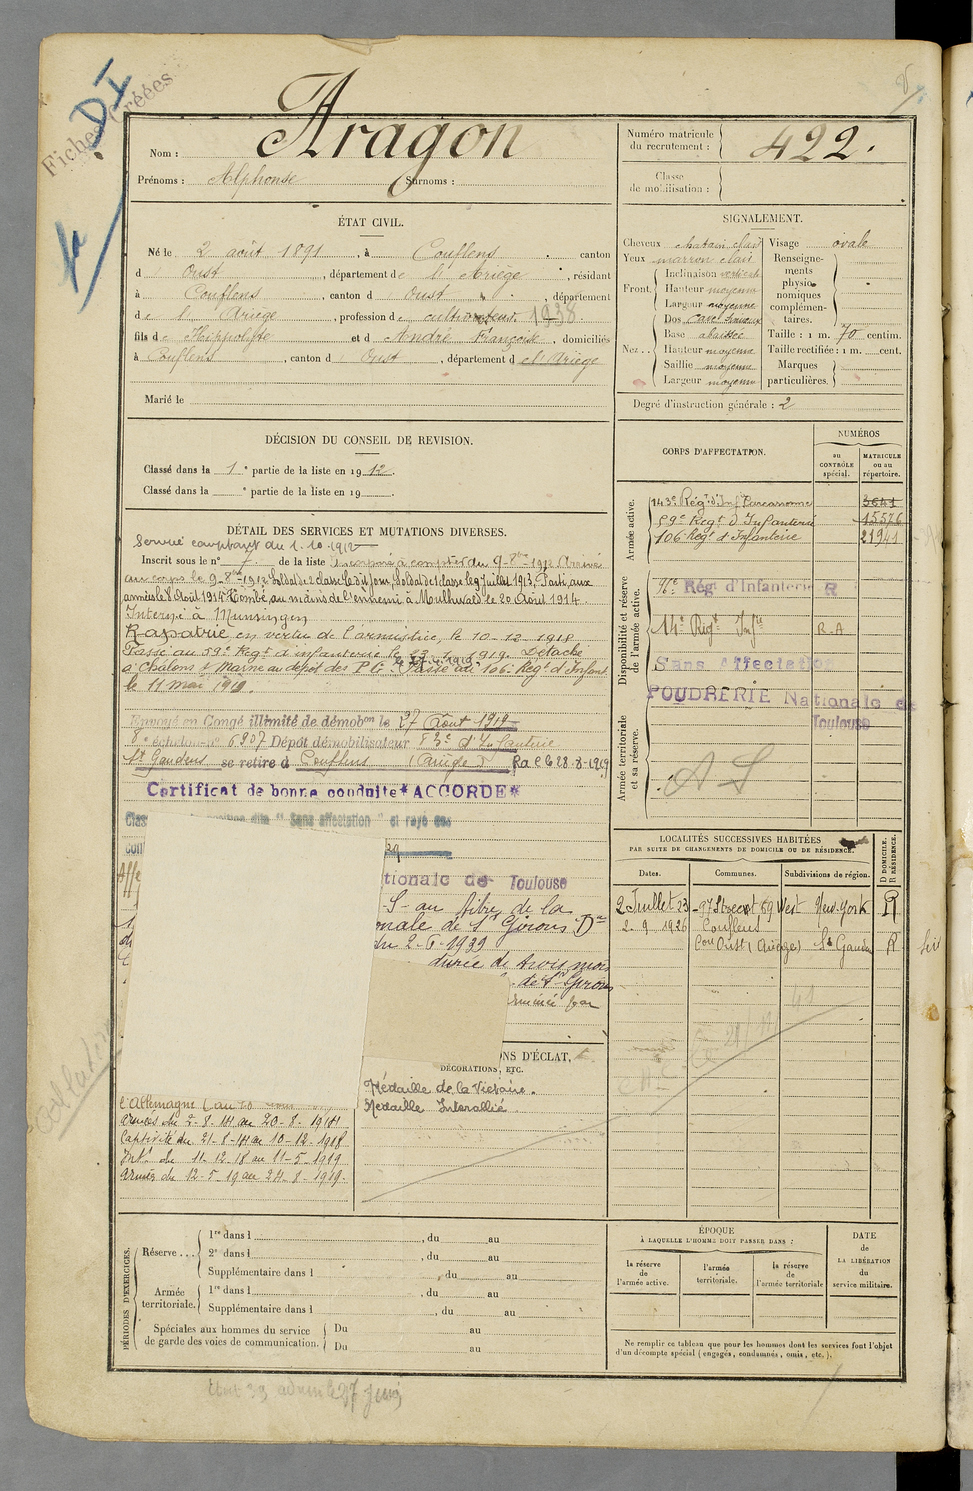 Fiches Créées
DI
Nom : Aragon
Prénoms : Alphonse Surnoms :
Numéro matricule du recrutement : 422.
Classe de mobilisation :
ÉTAT CIVIL.
Né le 2 août 1891, à Couflens canton
d Oust, département de l'Ariège, résidant
à Couflens, canton d Oust, département
de l'Ariège, profession de cultivateur 1938
fils de Hippolyte et d André Françoise, domiciliés
à Couflens, canton d Oust, département de l'Ariège
Marié le
SIGNALEMENT.
Cheveux chatain clair
Yeux marron clair
Front. Inclinaison verticale
Hauteur moyenne
Largeur moyenne
Nez... Dos
Base abaissée
Hauteur moyenne
Saillie moyenne
Largeur moyenne
Visage ovale
Renseignements physionomiques complémentaires.
Taille : 1 m. 70 centim.
Taille rectifiée : 1 m. cent.
Marques particulières.
Degré d'instruction générale : 2
DÉCISION DU CONSEIL DE REVISION.
Classé dans la 1e partie de la liste en 1912.
Classé dans la e partie de la liste en 19
CORPS D'AFFECTATION.
NUMÉROS
au CONTRÔLE spécial.
MATRICULE ou au répertoire.
Armée active.
143e Régt d'Inf Carcassonne 3641
59e Regt d'Infanterie 15576
106 Regt d'Infanterie 21941
Disponibilité et réserve de l'armée active.
Rég d'Infanterie R
14e Régt Infie R.A
Sans Affectation
POUDRERIE Nationale de
Toulouse
Armée territoriale et sa réserve.
A S
DÉTAIL DES SERVICES ET MUTATIONS DIVERSES.
Service comptant du 1.10.1912
Inscrit sous le n° 7 de la liste Incorporé à compter du 9-8bre-1912 Arrivé
au corps le 9-8bre-1912 Soldat de 2 classe le dit jour, Soldat de 1 classe le 9 juillet 1913, Parti aux
armées le 8 Août 1914 Tombé au mains de l'ennemi à Mulhwald le 20 Août 1914
Interné à Munsingen
Rapatrié en vertu de l'armistice, le 10-12-1918
Passé au 59e Regt d'infanterie le 1919. Détaché
à Châlons s/ Marne au dépôt des P.G. Passé au 106e Regt d'Infant.
le 11 mai 1919.
Envoyé en Congé illimité de démobon le 27 Août 1919
8e échelon n° 6307 Dépôt démobilisateur 83e d'Infanterie
St Gaudens se retire à Couflens (Ariège) Ra C 628-8-1919
Certificat de bonne conduite *ACCORDE*
Clas "Sans affectation" et rayé des
con
Affe
tionale de Toulouse
-S- au titre de la
onale de St Girons Dn
du 2-6-1939
durée de trois mois
de St Girons
par
LOCALITÉS SUCCESSIVES HABITÉES
PAR SUITE DE CHANGEMENTS DE DOMICILE OU DE RÉSIDENCE.
Dates. Communes. Subdivisions de région. D DOMICILE. R RÉSIDENCE.
2 Juillet 23 97 Street 69 West New-York R
2.9.1926 Couflens
Con Oust (Ariège) St Gaudens R
ONS D'ÉCLAT,
DÉCORATIONS, ETC.
Médaille de la Victoire.
Médaille Interalliée
l'Allemagne
Armées du 2-8-14 au 20-8-1914
Captivité du 21-8-14 au 10-12-1918
Intr du 11-12-18 au 11-5-1919
Armées du 12-5-19 au 24-8-1919.
PÉRIODES D'EXERCICES.
Réserve... 1re dans l , du au
2e dans l , du au
Supplémentaire dans l , du au
Armée territoriale. 1re dans l , du au
Supplémentaire dans l , du au
Spéciales aux hommes du service de garde des voies de communication. Du au
Du au
ÉPOQUE
À LAQUELLE L'HOMME DOIT PASSER DANS :
la réserve de l'armée active.
l'armée territoriale.
la réserve de l'armée territoriale
DATE de LA LIBÉRATION du service militaire.
Ne remplir ce tableau que pour les hommes dont les services font l'objet
d'un décompte spécial (engagés, condamnés, omis, etc.).